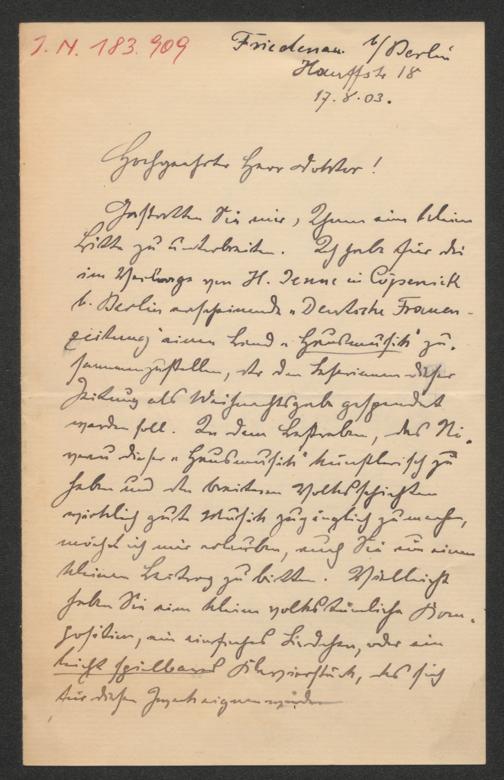 J. N. 183.909
Friedenau b/Berlin
Hauffstr 18
17.8.03.
Hochgeehrter Herr Doktor!
Gestatten Sie mir, Ihnen eine kleine
Bitte zu unterbreiten. Ich habe für die
im Verlage von H. Jenne in Cöpenick
b. Berlin erscheinende „Deutsche Frauen-
zeitung" einen Band „Hausmusik" zu-
sammenzustellen, der den Leserinnen dieser
Zeitung als Weihnachtsgabe gespendet
werden soll. In dem Bestreben, das Ni-
veau dieser „Hausmusik" künstlerisch zu
heben und den breiteren Volksschichten
wirklich gute Musik zugänglich zu machen,
möchte ich mir erlauben, auch Sie um einen
kleinen Beitrag zu bitten. Vielleicht
haben Sie eine kleine volkstümliche Kom-
position, ein einfaches Liedchen, oder ein
leicht spielbares Klavierstück, das sich
für diesen Zweck eignen würde